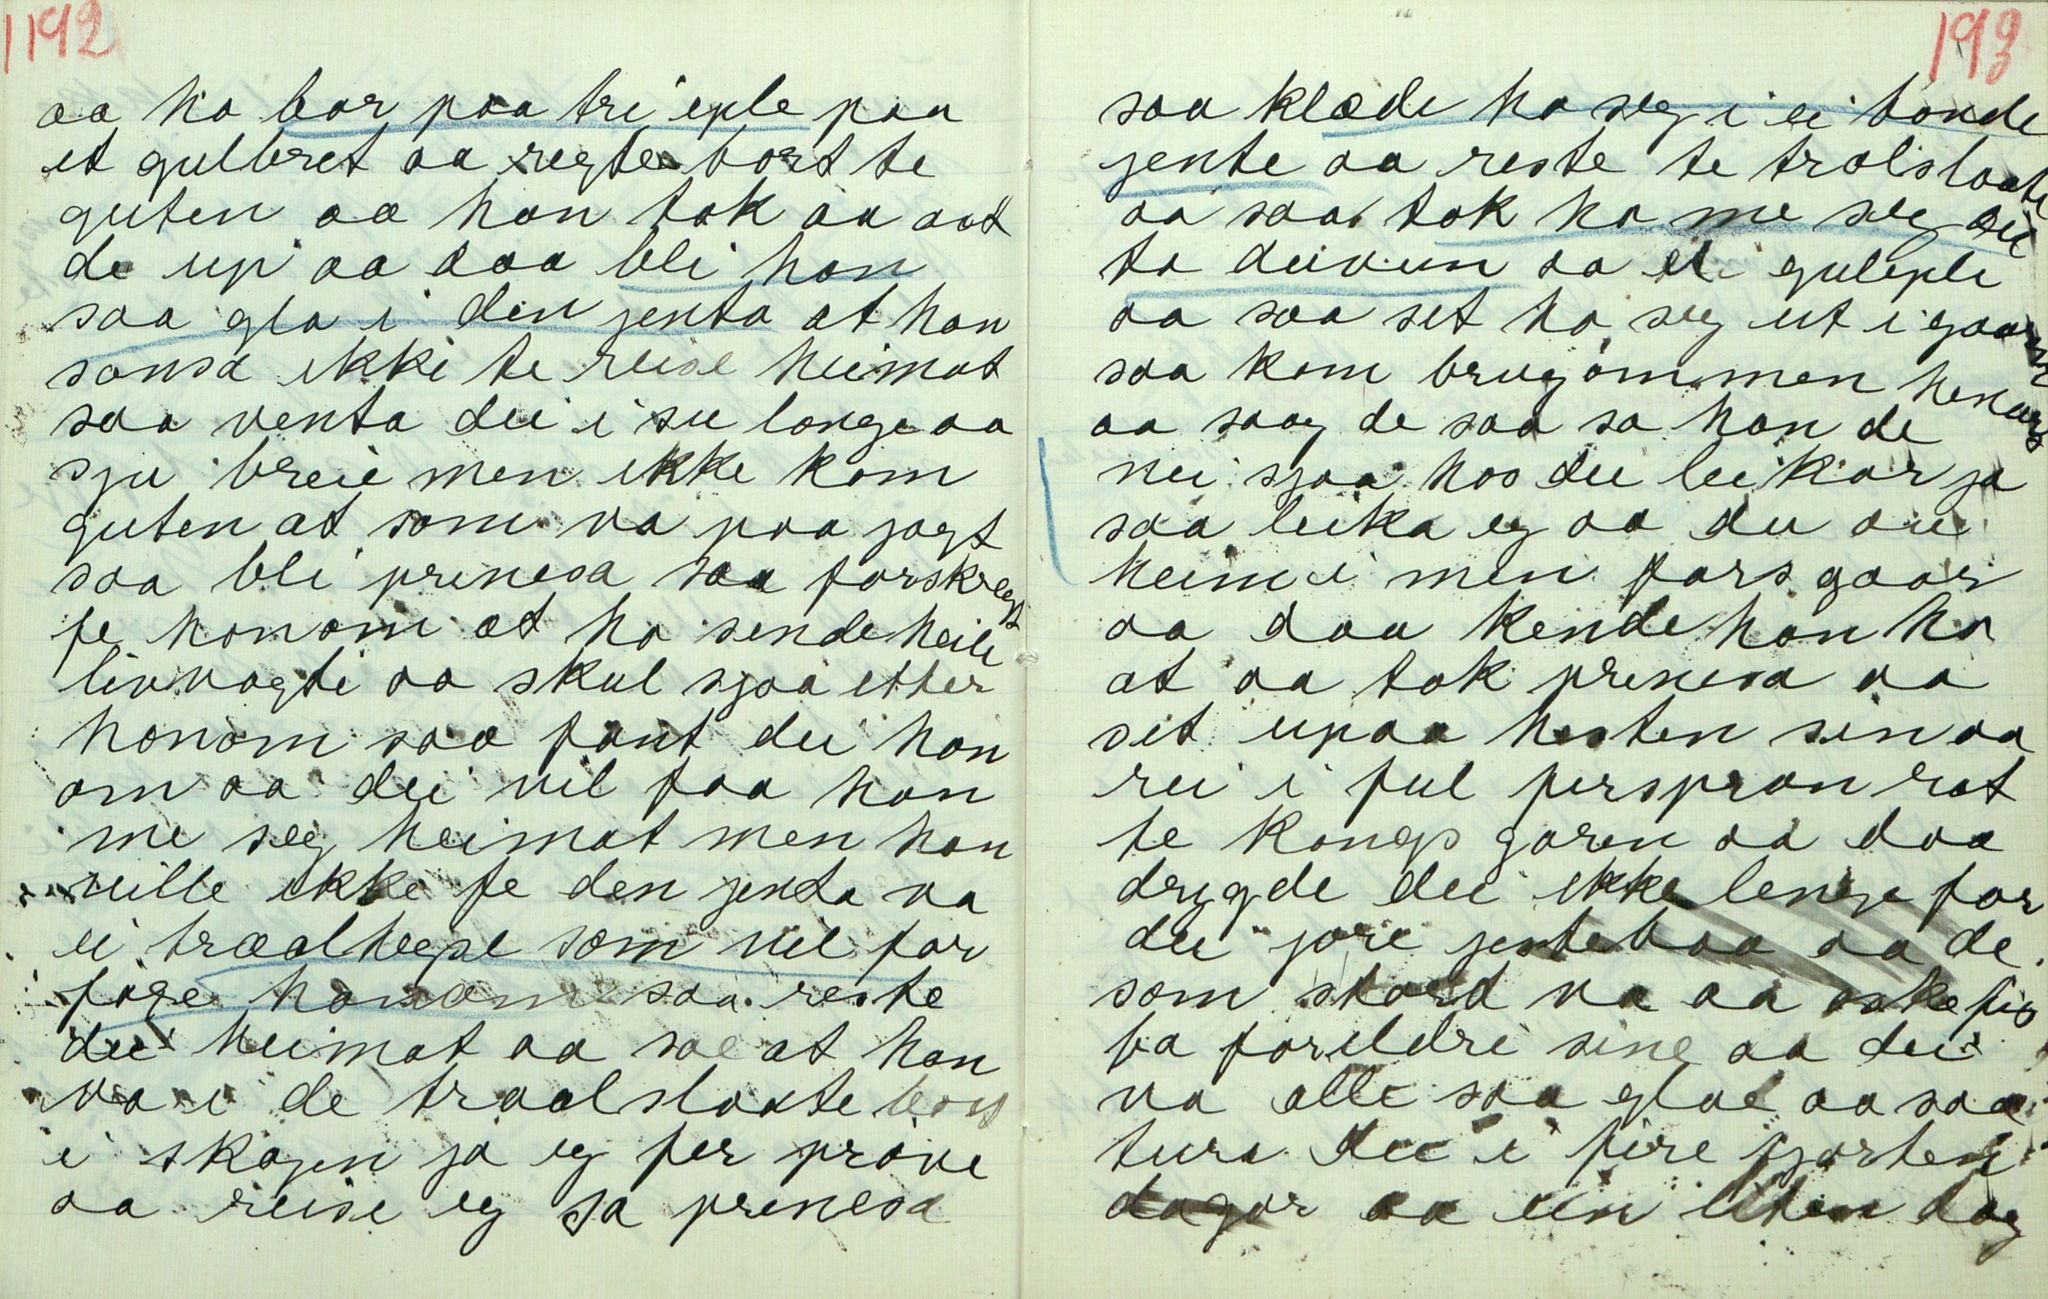 1192
aa ho bar paa tri eple paa
et gulbret aa regte bort te
guten aa han tok aa aat
de up aa daa blei han
saa gla i den jenta at han
sansa ikki te reise heimat
saa venta dei i su lange aa
sju breie men ikke kom
guten at som va paa jagt
saa blei prinesa saa forskregt
fe honom at ho sende heile
livvagti aa skul sjaa etter
honom saa fant dei han
om aa dei vil faa han
me seg heimat men han
ville ikke fe den jenta va
ei trœalhegse som vil for
föge honom saa reste
dei heimat aa sae at han
va i de traalslaate bort
i skogen ja eg fer pröve
aa reise eg sa prinesa
193
saa klœde ho seg i ei bonde
jente aa reste te trolslaate
aa saa tok ho me seg sit
to duvun aa ei guleple
aa saa set ho seg ut i gaaren
saa kom brugommen henars
aa saag de saa sa han de
nei sjaa hos dei leikar ja
saa leika eg aa du au
heim i min fars gaar
aa daa kende han ho
at aa tok prinesa aa
set upaa hesten sin aa
rei i ful firspran rat
te kongsgaren aa daa
drygde dei ikke lenge for
dei jore jesteboa aa de
som stord va aa
ba foreldre sine aa dei
va alle saa glae aa saa
tura dei i fire fjorten
dagar aa ein liten dag